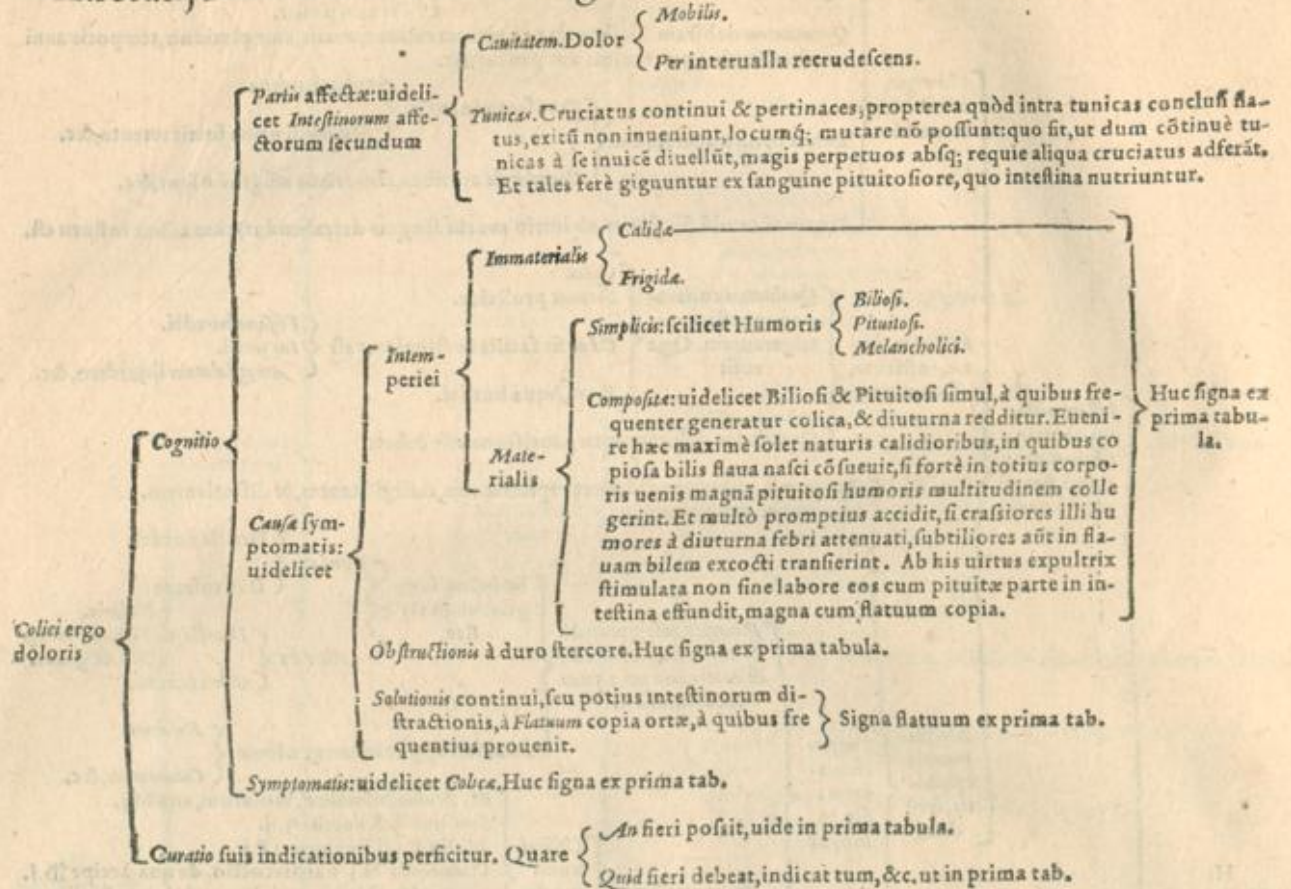 Mobilis.
Cauitatem. Dolor
Per interualla recrudeſcens.
Partis affectæ: uideli-
cet Inteſtinorum affe-
ctorum ſecundum
Tunicas. Cruciatus continui & pertinaces, propterea quòd intra tunicas concluſi fla-
tus, exitũ non inueniunt, locumq́; mutare nõ poſſunt: quo fit, ut dum cõtinuè tu-
nicas à ſe inuicẽ diuellũt, magis perpetuos abſq; requie aliqua cruciatus adferãt.
Et tales ferè gignuntur ex ſanguine pituitoſiore, quo inteſtina nutriuntur.
Calidæ
Immaterialis
Frigidæ.
Simplicis: ſcilicet Humoris
Bilioſi.
Pituitoſi.
Melancholici.
Intem-
periei
Compoſitæ: uidelicet Bilioſi & Pituitoſi ſimul, à quibus fre-
quenter generatur colica, & diuturna redditur. Eueni-
re hæc maximè ſolet naturis calidioribus, in quibus co
pioſa bilis flaua naſci cõſueuit, ſi fortè in totius corpo-
ris uenis magnã pituitoſi humoris multitudinem colle
gerint. Et multò promptius accidit, ſi craſsiores illi hu
mores à diuturna febri attenuati, ſubtiliores aũt in fla-
uam bilem excocti tranſierint. Ab his uirtus expultrix
ſtimulata non ſine labore eos cum pituitæ parte in in-
teſtina effundit, magna cum flatuum copia.
Huc ſigna ex
prima tabu-
la.
Mate-
rialis
Cognitio
Cauſæ ſym-
ptomatis:
uidelicet
Obſtructionis à duro ſtercore. Huc ſigna ex prima tabula.
Colici ergo
doloris
Solutionis continui, ſeu potius inteſtinorum di-
ſtractionis, à Flatuum copia ortæ, à quibus fre
quentius prouenit.
Signa flatuum ex prima tab.
Symptomatis: uidelicet Colicæ. Huc ſigna ex prima tab.
Curatio ſuis indicationibus perficitur. Quare
An fieri poſsit, uide in prima tabula.
Quid fieri debeat, indicat tum, &c. ut in prima tab.